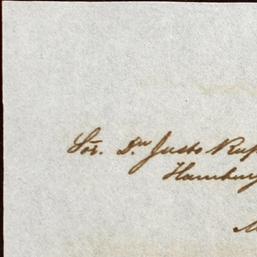 Sōr. Dn Justo Rup
Hamburg